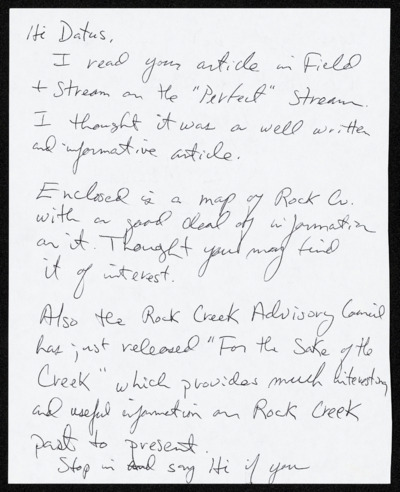 Hi Datus,
I read your article in Field
+ Stream on the "Perfect" Stream.
I thought it was a well written
and informative article.
Enclosed is a map of Rock Cr.
with a good deal of information
on it. Thought you may find
it of interest.
Also the Rock Creek Advisory Council
has just released "For the Sake of the
Creek" which provides much interesting
and useful information on Rock Creek
past to present.
Stop in and say Hi if you